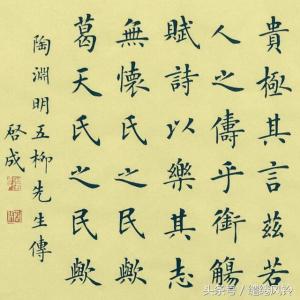 貴極其言茲若
人之儔乎銜觴
賦詩以樂其志
無懷氏之民歟
葛天氏之民歟
陶淵明五柳先生傳
啓成
头条号